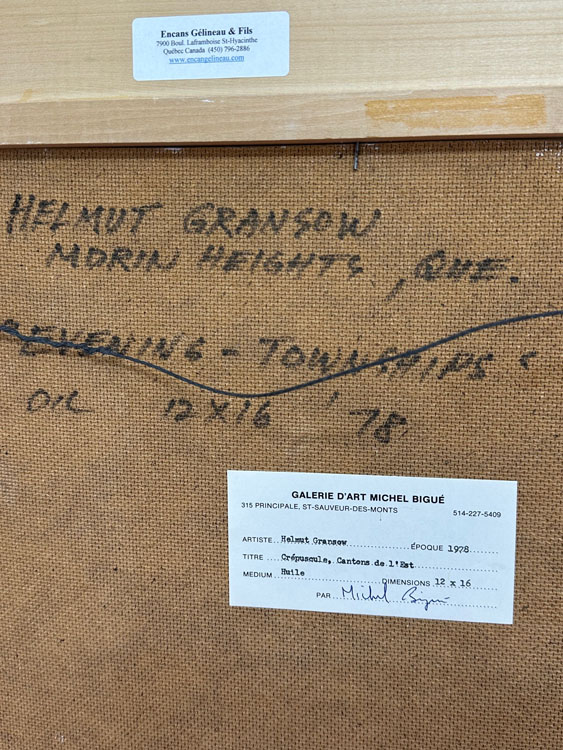 Encans Gélineau & Fils
7900 Boul. Laframboise St-Hyacinthe
Québec Canada (450) 796-2886
www.encangelineau.com
HELMUT GRANSOW
MORIN HEIGHTS, QUE.
"EVENING - TOWNSHIPS"
OIL 12 X 16 '78
GALERIE D'ART MICHEL BIGUÉ
315 PRINCIPALE, ST-SAUVEUR-DES-MONTS 514-227-5409
ARTISTE..Helmut Gransow..................ÉPOQUE 1978.......
TITRE ....Crépuscule, Cantons de l'Est....................
MEDIUM..Huile..................DIMENSIONS 12 x 16......
PAR...Michel Bigué..............